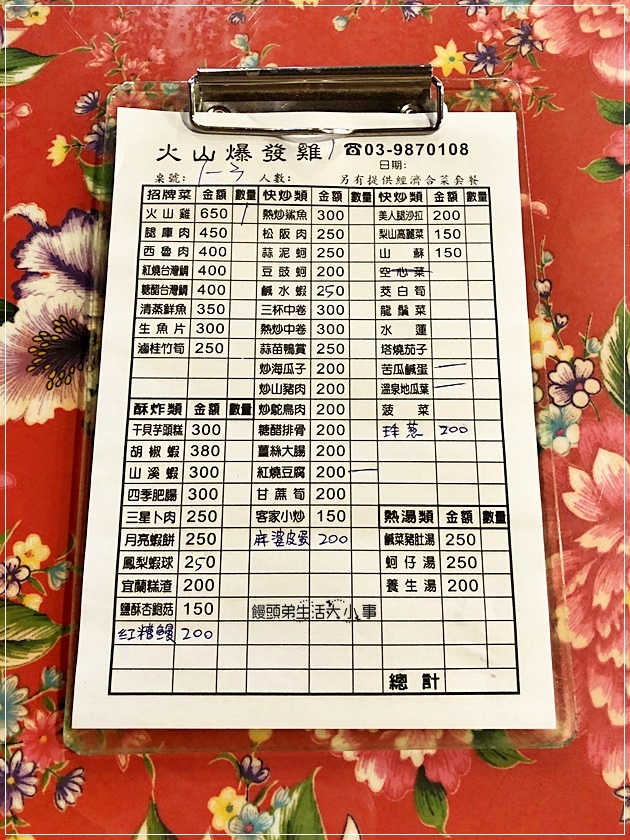 火山爆發雞 ☎03-9870108
日期:
桌號: 1-3 人數: 另有提供經濟合菜套餐
招牌菜 金額 數量 快炒類 金額 數量 快炒類 金額 數量
火山雞 650 1 熱炒鯊魚 300 美人腿沙拉 200
腿庫肉 450 松阪肉 250 梨山高麗菜 150
西魯肉 400 蒜泥蚵 250 山蘇 150
紅燒台灣鯛 400 豆豉蚵 200 空心菜
糖醋台灣鯛 400 鹹水蝦 250 茭白筍
清蒸鮮魚 350 三杯中卷 300 龍鬚菜
生魚片 300 熱炒中卷 300 水蓮
滷桂竹筍 250 蒜苗鴨賞 250 塔燒茄子
炒海瓜子 200 苦瓜鹹蛋
炒山豬肉 200 溫泉地瓜葉
酥炸類 金額 數量 炒鴕鳥肉 200 菠菜
干貝芋頭糕 300 糖醋排骨 200 珠蔥 200
胡椒蝦 380 薑絲大腸 200
山溪蝦 300 紅燒豆腐 200
四季肥腸 300 甘蔗筍 200
三星卜肉 250 客家小炒 150 熱湯類 金額 數量
月亮蝦餅 250 麻婆皮蛋 200 鹹菜豬肚湯 250
鳳梨蝦球 250 蚵仔湯 250
宜蘭糕渣 200 養生湯 200
鹽酥杏鮑菇 150 饅頭弟生活大小事
紅糟鰻 200
總計